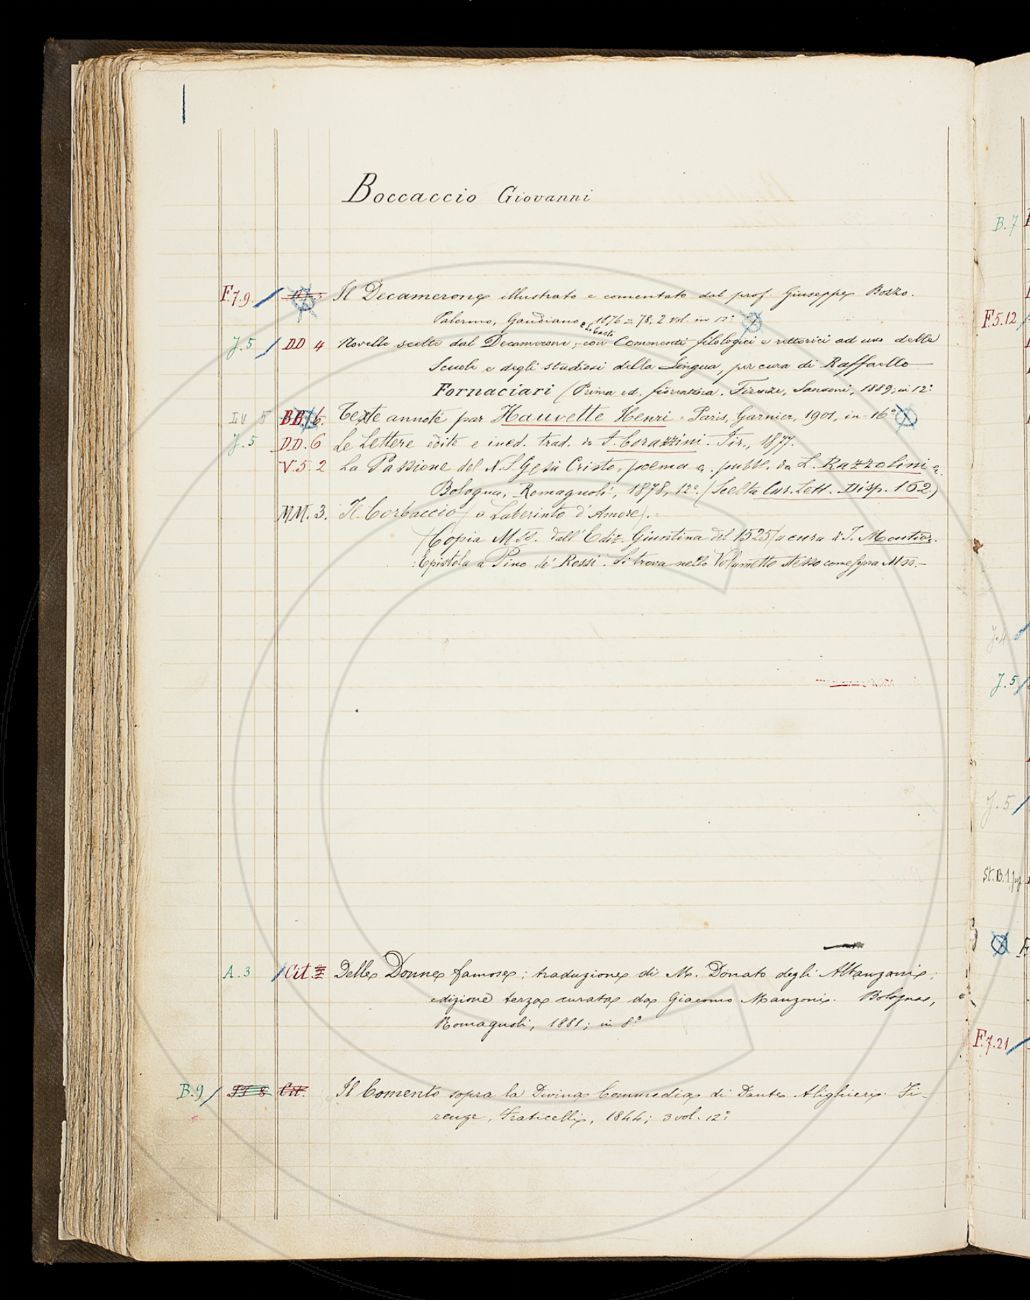 Boccaccio Giovanni
F.7.9. Il Decamerone illustrato e comentato dal prof. Giuseppe Bozzo.
Palermo, Gaudiano, 1876-78. 2 vol. in 12°
J.5 DD 4 Novelle scelte dal Decamerone, con Commenti filologici e rettorici ad uso delle
Scuole e degli studiosi della Lingua, per cura di Raffaello
Fornaciari (Prima ed. fiorentina. Firenze, Sansoni, 1889, in 12°
BB. 6. Texte annoté par Hauvette Henri. Paris, Garnier, 1901, in-16°
J.5 DD. 6 Le Lettere edite e ined. trad. da F. Corazzini. Fir., 1877.
V.5.2 La Passione del N.S. Gesù Cristo, poema pubbl. da L. Razzolini
Bologna, Romagnoli, 1878, 12° (Scelta Cur. Lett. Disp. 162)
MM. 3. Il Corbaccio o Laberinto d'Amore.
(Copia MSS. dall'Ediz. Giuntina del 1525 a cura di I. Moutier.
Epistola a Pino de' Rossi. Si trova nello Volumetto stesso come sopra Mss.-
A.3 Cit. Delle Donne famose; traduzione di M. Donato degli Albanzani;
edizione terza curata da Giacomo Manzoni. Bologna,
Romagnoli, 1881; in 8°
B.9 Cit. Il Comento sopra la Divina Commedia di Dante Alighieri. Fi-
renze, Fraticelli, 1844; 3 vol. 12°
B.7
F.5.12
J.4
J.5
J.5
St.B.1
F.7.21